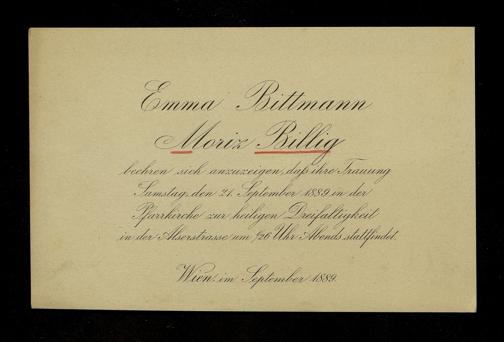 Emma Bittmann
Moriz Billig
beehren sich anzuzeigen, daß ihre Trauung
Samstag, den 21. September 1889, in der
Pfarrkirche zur heiligen Dreifaltigkeit
in der Alserstrasse um ½6 Uhr Abends, stattfindet.
Wien, im September 1889.